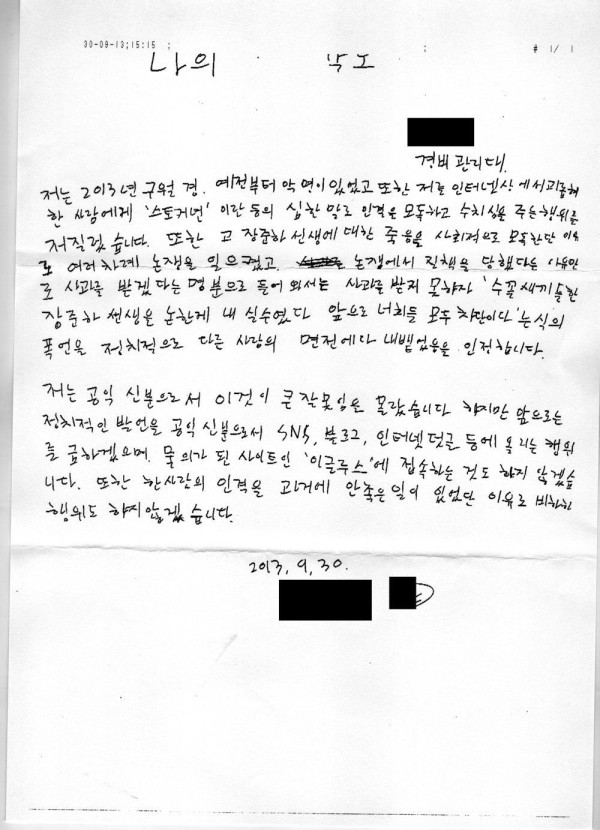 30-09-13;15:15 ; ; # 1/ 1
나의 각오
경비관리대.
저는 2013년 구월 경. 예전부터 악연이 있었고 또한 저를 인터넷상에서 괴롭혀
한 사람에게 '스토커년' 이란 등의 심한 말로 인격은 모독하고 수치심을 주는행위를
저질렀습니다. 또한 고 장준하선생에 대한 죽음을 사회적으로 모독한단 이유
로 여러차례 논쟁을 일으켰고. 논쟁에서 질책을 당했다는 이유만으
로 사과를 받겠다는 명분으로 들어와서는 사과를 받지 못하자 '수꼴새끼들한
장준하 선생을 논한게 내 실수였다 앞으로 너희들 모두 차단이다'는 식의
폭언을 정치적으로 다른 사람의 면전에다 내뱉었음을 인정합니다.
저는 공익 신분으로서 이것이 큰잘못임을 몰랐습니다 하지만 앞으로는
정치적인 발언을 공익 신분으로서 SNS, 블로그, 인터넷덧글 등에 올리는 행위
를 금하겠으며. 물의가 된 사이트인 '이글루스'에 접속하는 것도 하지 않겠습
니다. 또한 한사람의 인격을 과거에 안좋은일이 있었단 이유로 비하하는
행위도 하지않겠습니다.
2013. 9. 30.